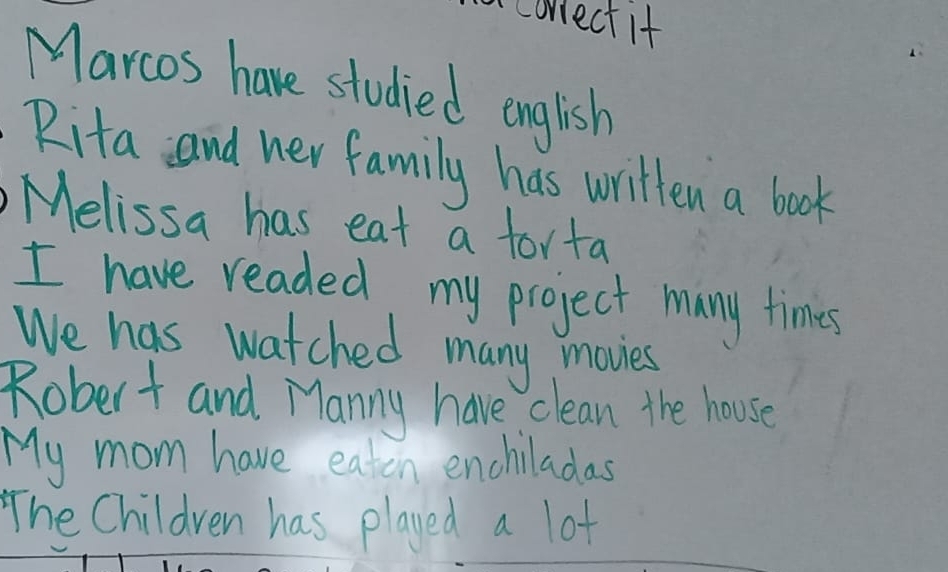 correct it
Marcos have studied english
Rita and her family has written a book
Melissa has eat a torta
I have readed my project many times
We has watched many movies
Robert and Manny have clean the house
My mom have eaten enchiladas
The Children has played a lot